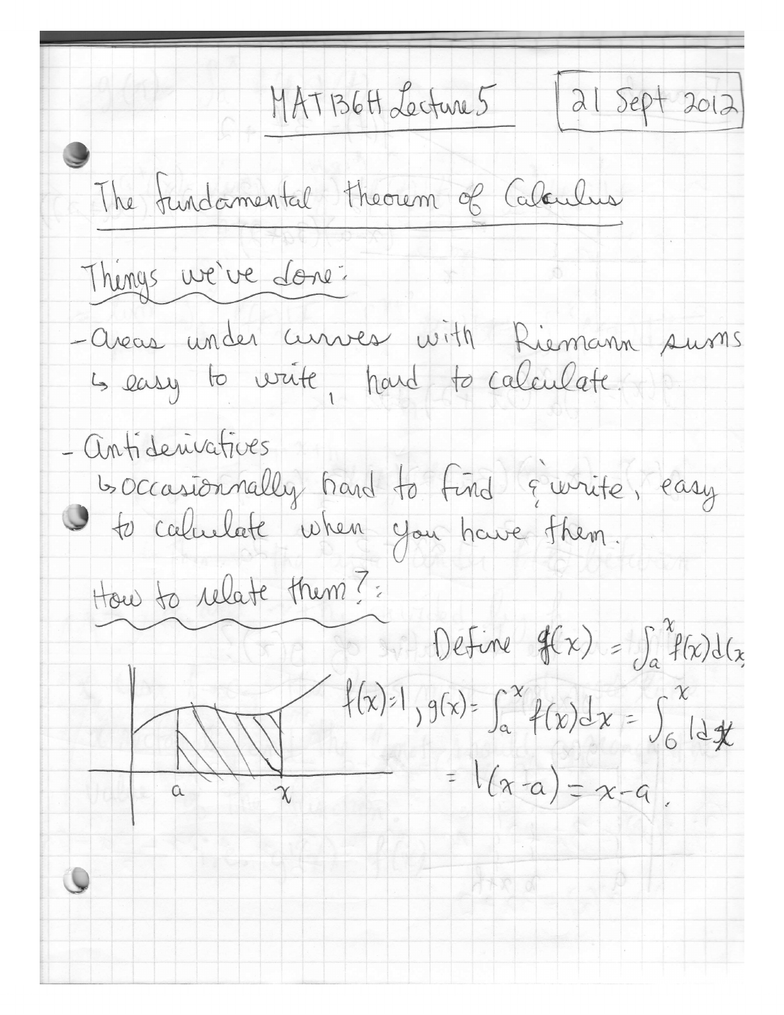 MAT136H Lecture 5
21 Sept 2012
The fundamental theorem of Calculus
Things we've done:
- Areas under curves with Riemann sums
↳ easy to write, hard to calculate.
- Antiderivatives
↳ occasionnally hard to find & write, easy
to calculate when you have them.
How to relate them?:
Define g(x) = ∫ₐˣ f(x)d(x
f(x)=1, g(x)= ∫ₐˣ f(x)dx = ∫₆ˣ 1dx
= 1(x-a) = x-a.
a x